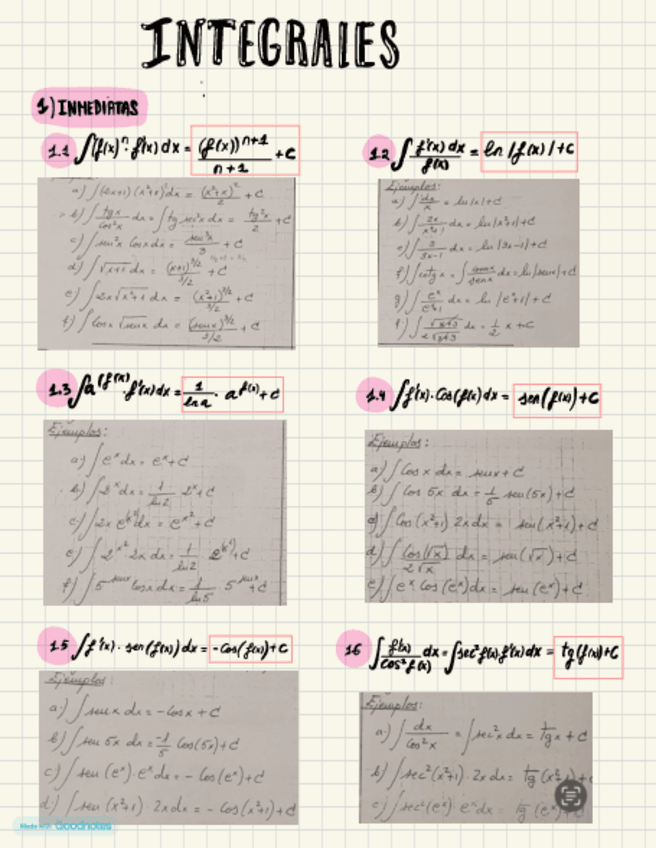 INTEGRALES
1) INMEDIATAS
1.1 ∫(f(x))^n · f'(x) dx = (f(x))^(n+1) / (n+1) + C
a) ∫(2x+1)(x²+x) dx = (x²+x)²/2 + C
b) ∫ tg x / cos² x dx = ∫ tg x sec² x dx = tg² x / 2 + C
c) ∫ sen² x cos x dx = sen³ x / 3 + C
d) ∫ √(x+1) dx = (x+1)^(3/2) / (3/2) + C
e) ∫ 2x √(x²+1) dx = (x²+1)^(3/2) / (3/2) + C
f) ∫ cos x √(sen x) dx = (sen x)^(3/2) / (3/2) + C
1.2 ∫ f'(x) dx / f(x) = ln |f(x)| + C
Ejemplos:
a) ∫ dx/x = ln|x| + C
b) ∫ 2x/(x²+1) dx = ln|x²+1| + C
e) ∫ 3/(3x-1) dx = ln|3x-1| + C
f) ∫ cotg x = ∫ cos x / sen x dx = ln|sen x| + C
g) ∫ e^x/(e^x+1) dx = ln|e^x+1| + C
1.3 ∫ a^(f(x)) · f'(x) dx = 1/ln a · a^(f(x)) + C
Ejemplos:
a) ∫ e^x dx = e^x + C
b) ∫ 2^x dx = 1/ln2 2^x + C
c) ∫ 2x e^(x²) dx = e^(x²) + C
e) ∫ 2^(x²) · 2x dx = 1/ln2 2^(x²) + C
f) ∫ 5^(sen x) cos x dx = 1/ln5 · 5^(sen x) + C
1.4 ∫ f'(x) · Cos(f(x)) dx = sen(f(x)) + C
Ejemplos:
a) ∫ Cos x dx = sen x + C
b) ∫ Cos 5x dx = 1/5 sen(5x) + C
c) ∫ Cos(x²+1) 2x dx = sen(x²+1) + C
d) ∫ Cos(√x) / 2√x dx = sen(√x) + C
e) ∫ e^x Cos(e^x) dx = sen(e^x) + C
1.5 ∫ f'(x) · sen(f(x)) dx = -Cos(f(x)) + C
Ejemplos:
a) ∫ sen x dx = -Cos x + C
b) ∫ sen 5x dx = -1/5 Cos(5x) + C
c) ∫ sen(e^x) · e^x dx = -Cos(e^x) + C
d) ∫ sen(x²+1) · 2x dx = -Cos(x²+1) + C
1.6 ∫ f'(x) / cos² f(x) dx = ∫ sec² f(x) · f'(x) dx = tg(f(x)) + C
Ejemplos:
a) ∫ dx / Cos² x = ∫ sec² x dx = tg x + C
b) ∫ sec²(x²+1) · 2x dx = tg(x²+1) + C
c) ∫ sec²(e^x) e^x dx = tg(e^x)
Made with Goodnotes